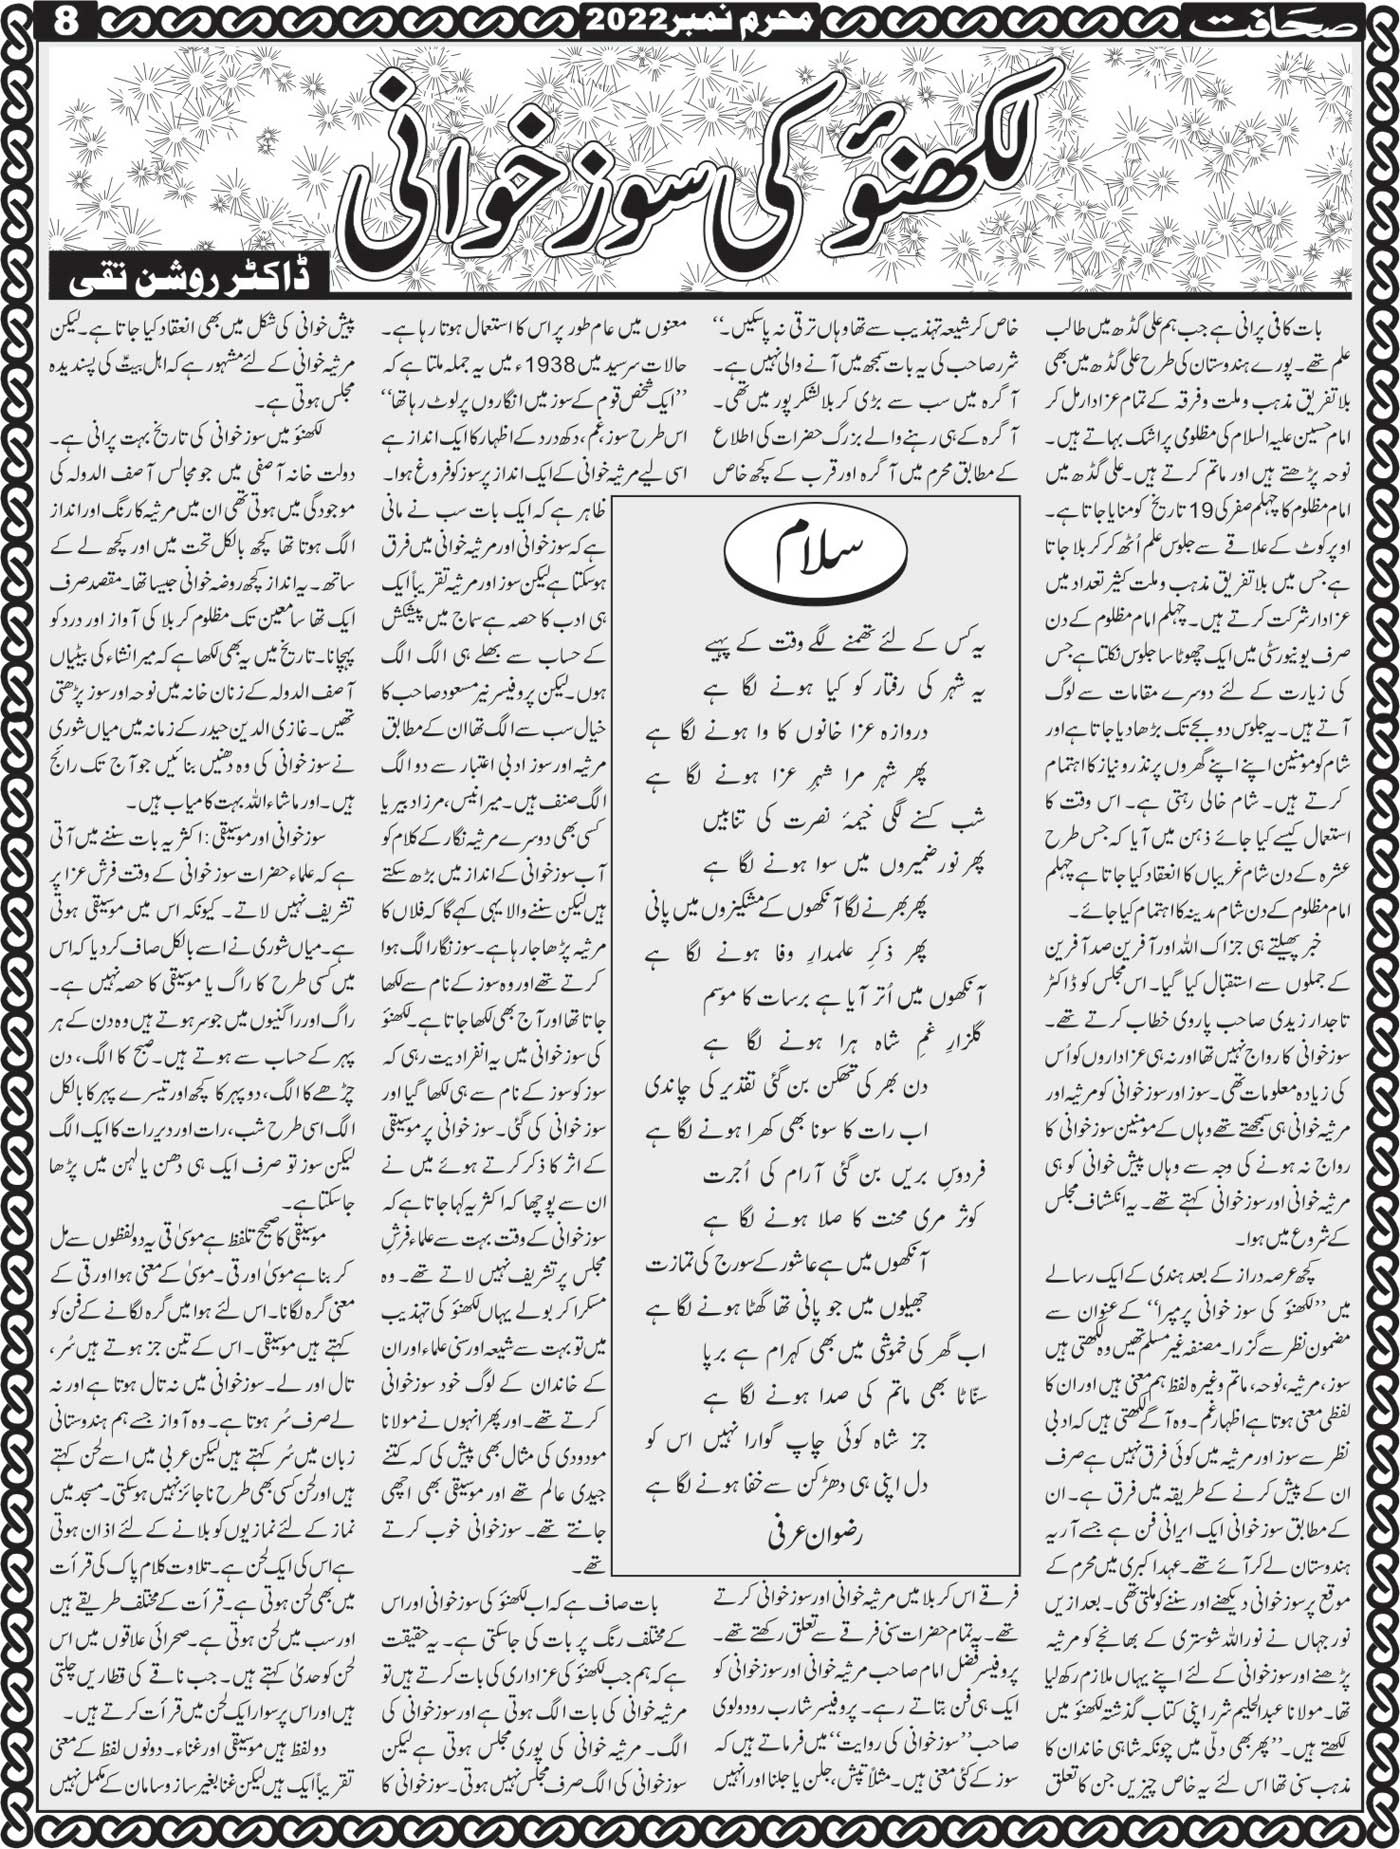 صحافت
محرم نمبر2022
8
لکھنؤ کی سوز خوانی
ڈاکٹر روشن تقی
بات کافی پرانی ہے جب ہم علی گڈھ میں طالب
علم تھے۔ پورے ہندوستان کی طرح علی گڈھ میں بھی
بلا تفریق مذہب و ملت و فرقہ کے تمام عزادار مل کر
امام حسین علیہ السلام کی مظلومی پر اشک بہاتے ہیں۔
نوحہ پڑھتے ہیں اور ماتم کرتے ہیں۔ علی گڈھ میں
امام مظلوم کا چہلم صفر کی 19 تاریخ کو منایا جاتا ہے۔
اوپر کوٹ کے علاقے سے جلوس علم اُٹھ کر کربلا جاتا
ہے جس میں بلا تفریق مذہب و ملت کثیر تعداد میں
عزادار شرکت کرتے ہیں۔ چہلم امام مظلوم کے دن
صرف یونیورسٹی میں ایک چھوٹا سا جلوس نکلتا ہے جس
کی زیارت کے لئے دوسرے مقامات سے لوگ
آتے ہیں۔ یہ جلوس دو بجے تک بڑھا دیا جاتا ہے اور
شام کو مومنین اپنے اپنے گھروں پر نذر و نیاز کا اہتمام
کرتے ہیں۔ شام خالی رہتی ہے۔ اس وقت کا
استعمال کیسے کیا جائے ذہن میں آیا کہ جس طرح
عشرہ کے دن شام غریباں کا انعقاد کیا جاتا ہے چہلم
امام مظلوم کے دن شام مدینہ کا اہتمام کیا جائے۔
خبر پھیلتے ہی جزاک اللہ اور آفرین صد آفرین
کے جملوں سے استقبال کیا گیا۔ اس مجلس کو ڈاکٹر
تاجدار زیدی صاحب پاروی خطاب کرتے تھے۔
سوز خوانی کا رواج نہیں تھا اور نہ ہی عزاداروں کو اُس
کی زیادہ معلومات تھی۔ سوز اور سوز خوانی کو مرثیہ اور
مرثیہ خوانی ہی سمجھتے تھے وہاں کے مومنین سوز خوانی کا
رواج نہ ہونے کی وجہ سے وہاں پیش خوانی کو ہی
مرثیہ خوانی اور سوز خوانی کہتے تھے۔ یہ انکشاف مجلس
کے شروع میں ہوا۔
کچھ عرصہ دراز کے بعد ہندی کے ایک رسالے
میں ’’لکھنؤ کی سوز خوانی پرمپرا‘‘ کے عنوان سے
مضمون نظر سے گزرا۔ مصنفہ غیر مسلم تھیں وہ لکھتی ہیں
سوز، مرثیہ، نوحہ، ماتم وغیرہ لفظ ہم معنی ہیں اور ان کا
لفظی معنی ہوتا ہے اظہار غم۔ وہ آگے لکھتی ہیں کہ ادبی
نظر سے سوز اور مرثیہ میں کوئی فرق نہیں ہے صرف
ان کے پیش کرنے کے طریقہ میں فرق ہے۔ ان
کے مطابق سوز خوانی ایک ایرانی فن ہے جسے آریہ
ہندوستان لے کر آئے تھے۔ عہد اکبری میں محرم کے
موقع پر سوز خوانی دیکھنے اور سننے کو ملتی تھی۔ بعد ازیں
نور جہاں نے نور اللہ شوستری کے بھانجے کو مرثیہ
پڑھنے اور سوز خوانی کے لئے اپنے یہاں ملازم رکھ لیا
تھا۔ مولانا عبدالحلیم شرر اپنی کتاب گذشتہ لکھنؤ میں
لکھتے ہیں۔ ’’پھر بھی دلّی میں چونکہ شاہی خاندان کا
مذہب سنی تھا اس لئے یہ خاص چیزیں جن کا تعلق
خاص کر شیعہ تہذیب سے تھا وہاں ترقی نہ پاسکیں۔‘‘
شرر صاحب کی یہ بات سمجھ میں آنے والی نہیں ہے۔
آگرہ میں سب سے بڑی کربلا لشکر پور میں تھی۔
آگرہ کے ہی رہنے والے بزرگ حضرات کی اطلاع
کے مطابق محرم میں آگرہ اور قرب کے کچھ خاص
سلام
یہ کس کے لئے تھمنے لگے وقت کے پہیے
یہ شہر کی رفتار کو کیا ہونے لگا ہے
دروازہ عزا خانوں کا وا ہونے لگا ہے
پھر شہر مرا شہرِ عزا ہونے لگا ہے
شب کسنے لگی خیمۂ نصرت کی تنابیں
پھر نور ضمیروں میں سوا ہونے لگا ہے
پھر بھرنے لگا آنکھوں کے مشکیزوں میں پانی
پھر ذکرِ علمدارِ وفا ہونے لگا ہے
آنکھوں میں اُتر آیا ہے برسات کا موسم
گلزارِ غمِ شاہ ہرا ہونے لگا ہے
دن بھر کی تھکن بن گئی تقدیر کی چاندی
اب رات کا سونا بھی کھرا ہونے لگا ہے
فردوسِ بریں بن گئی آرام کی اُجرت
کوثر مری محنت کا صلا ہونے لگا ہے
آنکھوں میں ہے عاشور کے سورج کی تمازت
جھیلوں میں جو پانی تھا گھٹا ہونے لگا ہے
اب گھر کی خموشی میں بھی کہرام ہے برپا
سنّاٹا بھی ماتم کی صدا ہونے لگا ہے
جز شاہ کوئی چاپ گوارا نہیں اس کو
دل اپنی ہی دھڑکن سے خفا ہونے لگا ہے
رضوان عرفی
فرقے اس کربلا میں مرثیہ خوانی اور سوز خوانی کرتے
تھے۔ یہ تمام حضرات سنی فرقے سے تعلق رکھتے تھے۔
پروفیسر فضل امام صاحب مرثیہ خوانی اور سوز خوانی کو
ایک ہی فن بتاتے رہے۔ پروفیسر شارب رودولوی
صاحب ’’سوز خوانی کی روایت‘‘ میں فرماتے ہیں کہ
سوز کے کئی معنی ہیں۔ مثلاً تپش، جلن یا جلنا اور انہیں
معنوں میں عام طور پر اس کا استعمال ہوتا رہا ہے۔
حالات سرسید میں 1938ء میں یہ جملہ ملتا ہے کہ
’’ایک شخص قوم کے سوز میں انگاروں پر لوٹ رہا تھا‘‘
اس طرح سوز، غم، دکھ درد کے اظہار کا ایک انداز ہے
اسی لیے مرثیہ خوانی کے ایک انداز پر سوز کو فروغ ہوا۔
ظاہر ہے کہ ایک بات سب نے مانی
ہے کہ سوز خوانی اور مرثیہ خوانی میں فرق
ہوسکتا ہے لیکن سوز اور مرثیہ تقریباً ایک
ہی ادب کا حصہ ہے سماج میں پیشکش
کے حساب سے بھلے ہی الگ الگ
ہوں۔ لیکن پروفیسر نیر مسعود صاحب کا
خیال سب سے الگ تھا ان کے مطابق
مرثیہ اور سوز ادبی اعتبار سے دو الگ
الگ صنف ہیں۔ میر انیس، مرزا دبیر یا
کسی بھی دوسرے مرثیہ نگار کے کلام کو
آپ سوز خوانی کے انداز میں بڑھ سکتے
ہیں لیکن سننے والا یہی کہے گا کہ فلاں کا
مرثیہ پڑھا جارہا ہے۔ سوز نگار الگ ہوا
کرتے تھے اور وہ سوز کے نام سے لکھا
جاتا تھا اور آج بھی لکھا جاتا ہے۔ لکھنؤ
کی سوز خوانی میں یہ انفرادیت رہی کہ
سوز کو سوز کے نام سے ہی لکھا گیا اور
سوز خوانی کی گئی۔ سوز خوانی پر موسیقی
کے اثر کا ذکر کرتے ہوئے میں نے
ان سے پوچھا کہ اکثر یہ کہا جاتا ہے کہ
سوز خوانی کے وقت بہت سے علماء فرش
مجلس پر تشریف نہیں لاتے تھے۔ وہ
مسکرا کر بولے یہاں لکھنؤ کی تہذیب
میں تو بہت سے شیعہ اور سنی علماء اور ان
کے خاندان کے لوگ خود سوز خوانی
کرتے تھے۔ اور پھر انہوں نے مولانا
مودودی کی مثال بھی پیش کی کہ کتنے
جیدی عالم تھے اور موسیقی بھی اچھی
جانتے تھے۔ سوز خوانی خوب کرتے
تھے۔
بات صاف ہے کہ اب لکھنؤ کی سوز خوانی اور اس
کے مختلف رنگ پر بات کی جاسکتی ہے۔ یہ حقیقت
ہے کہ ہم جب لکھنؤ کی عزاداری کی بات کرتے ہیں تو
مرثیہ خوانی کی بات الگ ہوتی ہے اور سوز خوانی کی
الگ۔ مرثیہ خوانی کی پوری مجلس ہوتی ہے لیکن
سوز خوانی کی الگ صرف مجلس نہیں ہوتی۔ سوز خوانی کا
پیش خوانی کی شکل میں بھی انعقاد کیا جاتا ہے۔ لیکن
مرثیہ خوانی کے لئے مشہور ہے کہ اہل بیتؑ کی پسندیدہ
مجلس ہوتی ہے۔
لکھنؤ میں سوز خوانی کی تاریخ بہت پرانی ہے۔
دولت خانہ آصفی میں جو مجالس آصف الدولہ کی
موجودگی میں ہوتی تھی ان میں مرثیہ کا رنگ اور انداز
الگ ہوتا تھا کچھ بالکل تحت میں اور کچھ لے کے
ساتھ۔ یہ انداز کچھ روضہ خوانی جیسا تھا۔ مقصد صرف
ایک تھا سامعین تک مظلوم کربلا کی آواز اور درد کو
پہچانا۔ تاریخ میں یہ بھی لکھا ہے کہ میر انشاء کی بیٹیاں
آصف الدولہ کے زنان خانہ میں نوحہ اور سوز پڑھتی
تھیں۔ غازی الدین حیدر کے زمانہ میں میاں شوری
نے سوز خوانی کی وہ دھنیں بنائیں جو آج تک رائج
ہیں۔ اور ماشاء اللہ بہت کامیاب ہیں۔
سوز خوانی اور موسیقی: اکثر یہ بات سننے میں آتی
ہے کہ علماء حضرات سوز خوانی کے وقت فرش عزا پر
تشریف نہیں لاتے۔ کیونکہ اس میں موسیقی ہوتی
ہے۔ میاں شوری نے اسے بالکل صاف کردیا کہ اس
میں کسی طرح کا راگ یا موسیقی کا حصہ نہیں ہے۔
راگ اور راگنیوں میں جو سر ہوتے ہیں وہ دن کے ہر
پہر کے حساب سے ہوتے ہیں۔ صبح کا الگ، دن
چڑھے کا الگ، دوپہر کا کچھ اور تیسرے پہر کا بالکل
الگ اسی طرح شب، رات اور دیر رات کا ایک الگ
لیکن سوز تو صرف ایک ہی دھن یا لہن میں پڑھا
جاسکتا ہے۔
موسیقی کا صحیح تلفظ ہے موسیٰ قی یہ دو لفظوں سے مل
کر بنا ہے موسیٰ اور قی۔ موسیٰ کے معنی ہوا اور قی کے
معنی گرہ لگانا۔ اس لئے ہوا میں گرہ لگانے کے فن کو
کہتے ہیں موسیقی۔ اس کے تین جز ہوتے ہیں سُر،
تال اور لے۔ سوز خوانی میں نہ تال ہوتا ہے اور نہ
لے صرف سُر ہوتا ہے۔ وہ آواز جسے ہم ہندوستانی
زبان میں سُر کہتے ہیں لیکن عربی میں اسے لحن کہتے
ہیں اور لحن کسی بھی طرح ناجائز نہیں ہوسکتی۔ مسجد میں
نماز کے لئے نمازیوں کو بلانے کے لئے اذان ہوتی
ہے اس کی ایک لحن ہے۔ تلاوت کلام پاک کی قرأت
میں بھی لحن ہوتی ہے۔ قرأت کے مختلف طریقے ہیں
اور سب میں لحن ہوتی ہے۔ صحرائی علاقوں میں اس
لحن کو حدیٰ کہتے ہیں۔ جب ناقے کی قطاریں چلتی
ہیں اور اس پر سوار ایک لحن میں قرأت کرتے ہیں۔
دو لفظ ہیں موسیقی اور غناء۔ دونوں لفظ کے معنی
تقریباً ایک ہیں لیکن غنا بغیر ساز و سامان کے مکمل نہیں